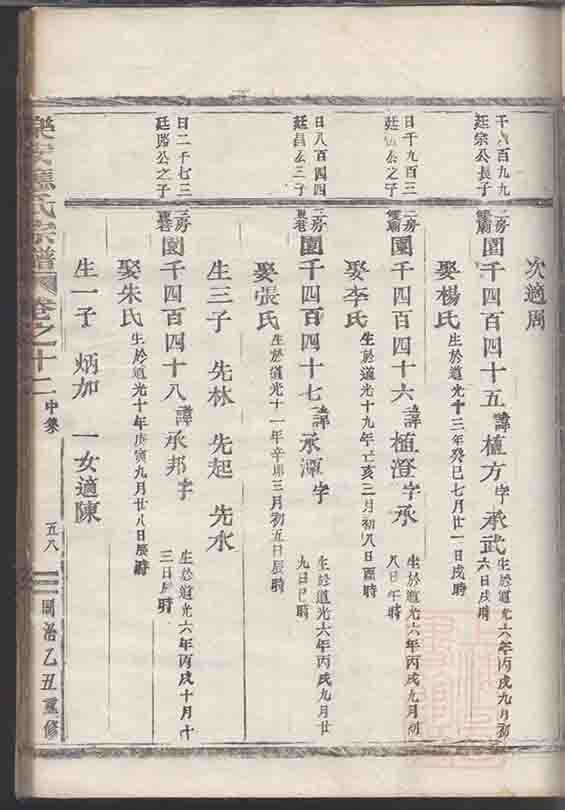 次適周
千六百九九
廷宗公長子
二房
圜千四百四十五諱植方字承武
生於道光六年丙戌九月初
六日戌時
娶楊氏
生於道光十三年癸巳七月廿一日戌時
日千九百三
公之子
二房
圜千四百四十六諱植澄字承
生於道光六年丙戌九月初
八日午時
娶李氏
生於道光十九年亡亥二月初八日酉時
日八百四四
廷昌公三子
三房
圜千四百四十七諱承潭字
生於道光六年丙戌九月廿
九日巳時
娶張氏
生於道光十一年辛卯三月初五日辰時
生三子 先林 先起 先水
日二千七三
廷公之子
圜千四百四十八諱承邦字
生於道光六年丙戌十月十
三日辰時
娶朱氏
生於道光十年庚寅九月廿八日辰時
生一子 炳加 一女適陳
樂安孫氏宗譜 卷之十二 中參 五八 同治乙丑重修